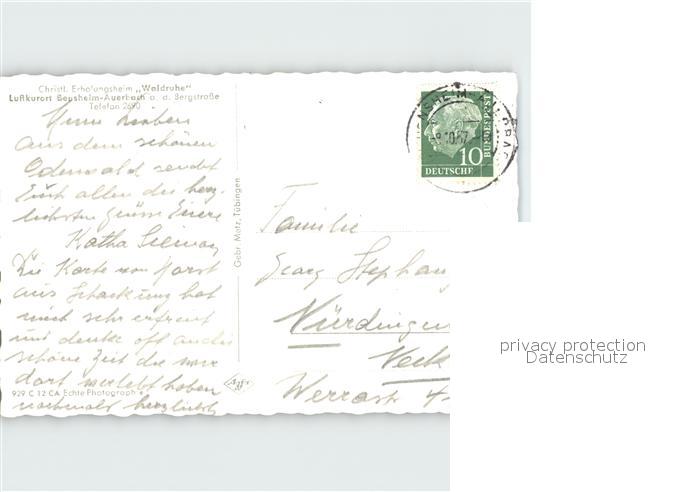 Christl. Erholungsheim „Waldruhe"
Luftkurort Bensheim-Auerbach a. d. Bergstraße
Telefon 2690
Meine Lieben
aus dem schönen
Odenwald sendet
Euch allen die herz-
lichsten Grüsse Eure
Katha
Die Karte von Horst
aus hat
mich sehr erfreut
und denke oft an die
schöne Zeit die wir
dort verlebt haben
nochmals herzlichst
929 C 12 CA Echte Photograph
Gebr. Metz, Tübingen
10
DEUTSCHE
BUNDESPOST
Familie
Georg Stephan
Nürdingen
Neck
Werrastr 4
privacy protection
Datenschutz